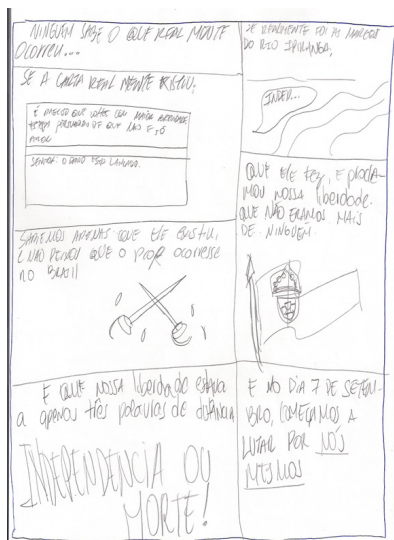 NINGUÉM SABE O QUE REAL MENTE
OCORREU...
SE A CARTA REAL MENTE EXISTIU.
É PRECISO QUE VOLTE COM MAIOR BREVIDADE
ESTEJA PERSUADIDO DE QUE NÃO É SÓ
AMOR
SENHOR: O DADO ESTÁ LANÇADO.
SABEMOS APENAS QUE ELE EXISTIU,
E NÃO DEIXOU QUE O PIOR OCORRESSE
NO BRASIL
E QUE NOSSA liberdade estava
a apenas três palavras de distância
INDEPENDENCIA OU
MORTE!
SE REALMENTE FOI AS MARGENS
DO RIO IPIRANGA,
INDEP...
QUE ELE FEZ, E PROCLA-
MOU NOSSA liberdade.
QUE NÃO ERAMOS MAIS
DE NINGUÉM
E NO DIA 7 DE SETEM-
BRO, COMEÇAMOS A
LUTAR POR NÓS
MESMOS